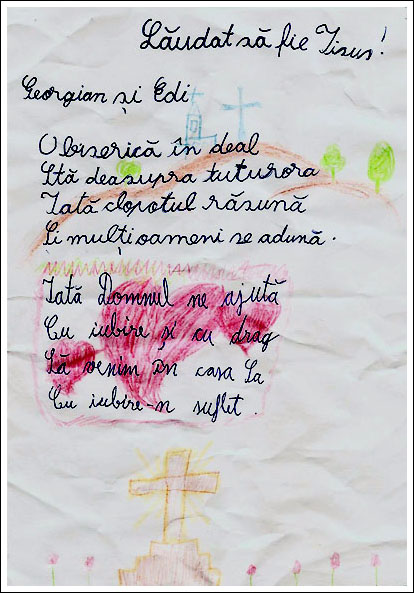 Lăudat să fie Iisus!
Georgian și Edi
O biserică în deal
Stă deasupra tuturora
Iată clopotul răsună
Și mulți oameni se adună.
Iată Domnul ne ajută
Cu iubire și cu drag
Să venim în casa Sa
Cu iubire-n suflet.